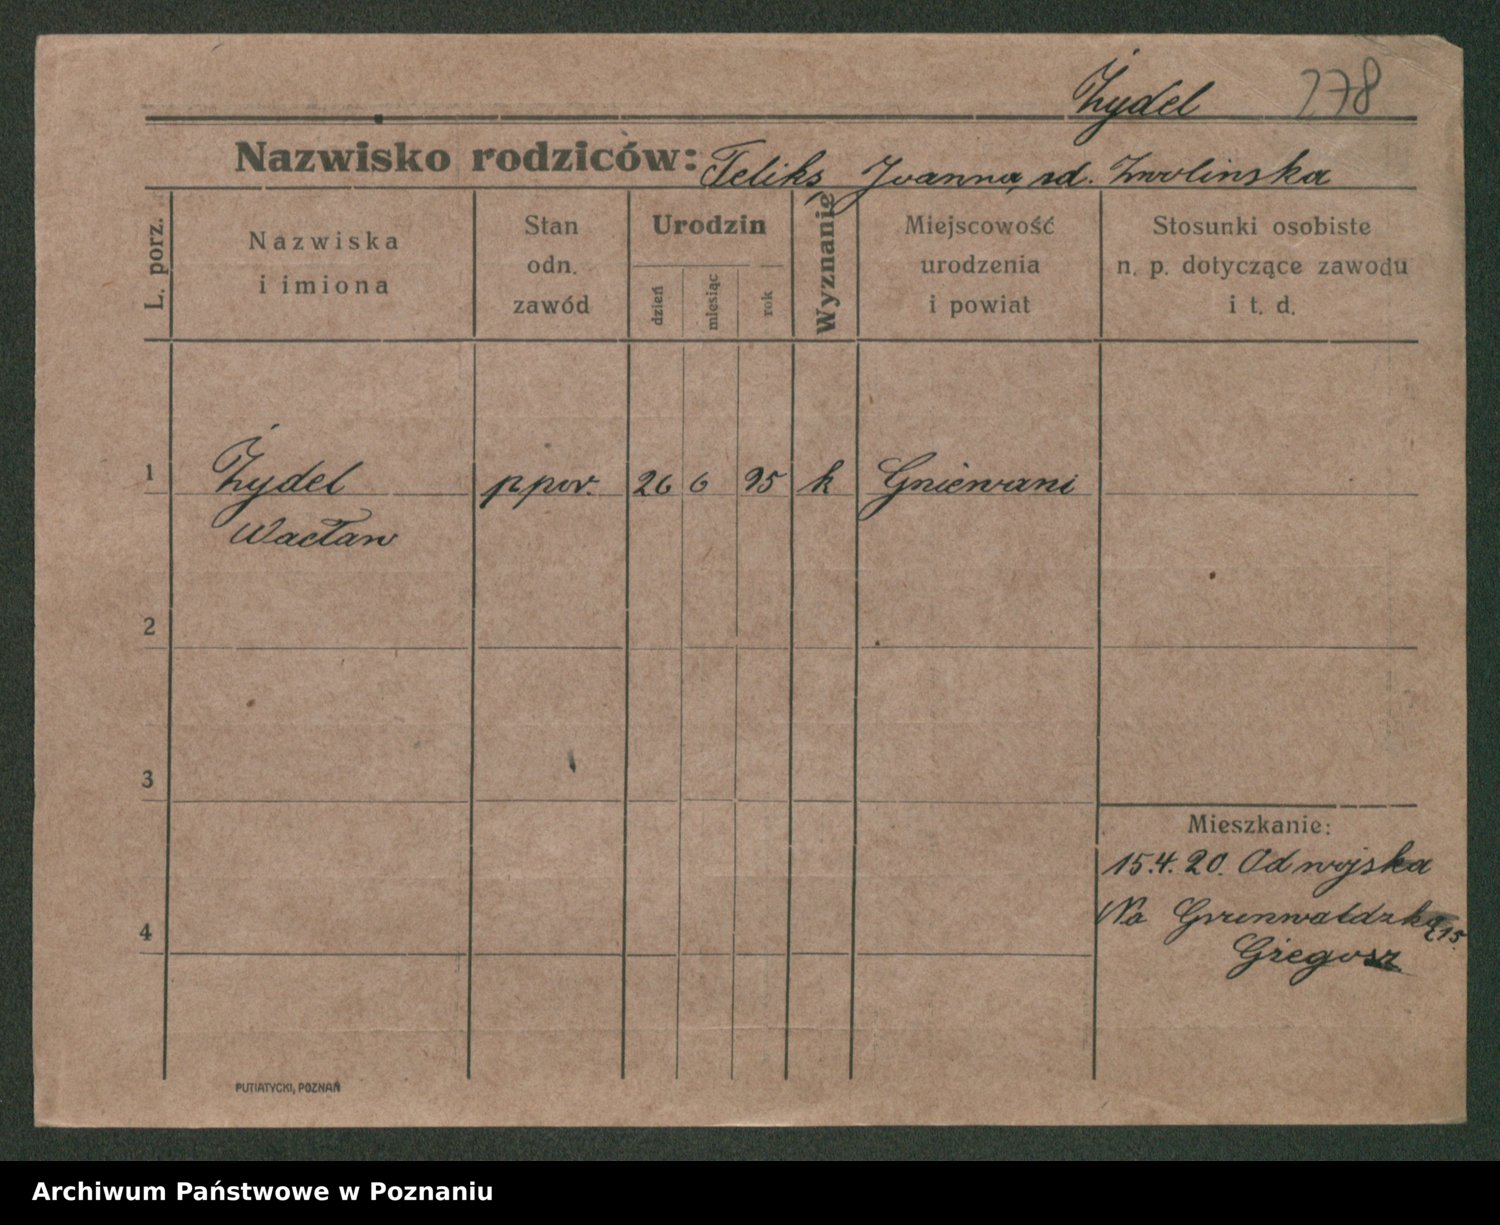 Żydel 278
Nazwisko rodziców: Feliks, Joanna, zd. Zwolinska
L. porz.
Nazwiska
i imiona
Stan
odn.
zawód
Urodzin
dzień
miesiąc
rok
Wyznanie
Miejscowość
urodzenia
i powiat
Stosunki osobiste
n. p. dotyczące zawodu
i t. d.
1 Żydel ppor. 26 6 95 k Gniewani
Wacław
2
3
Mieszkanie:
15.4.20. Od wojska
Na Grunwaldzką 15.
4
PUTIATYCKI, POZNAŃ
Archiwum Państwowe w Poznaniu